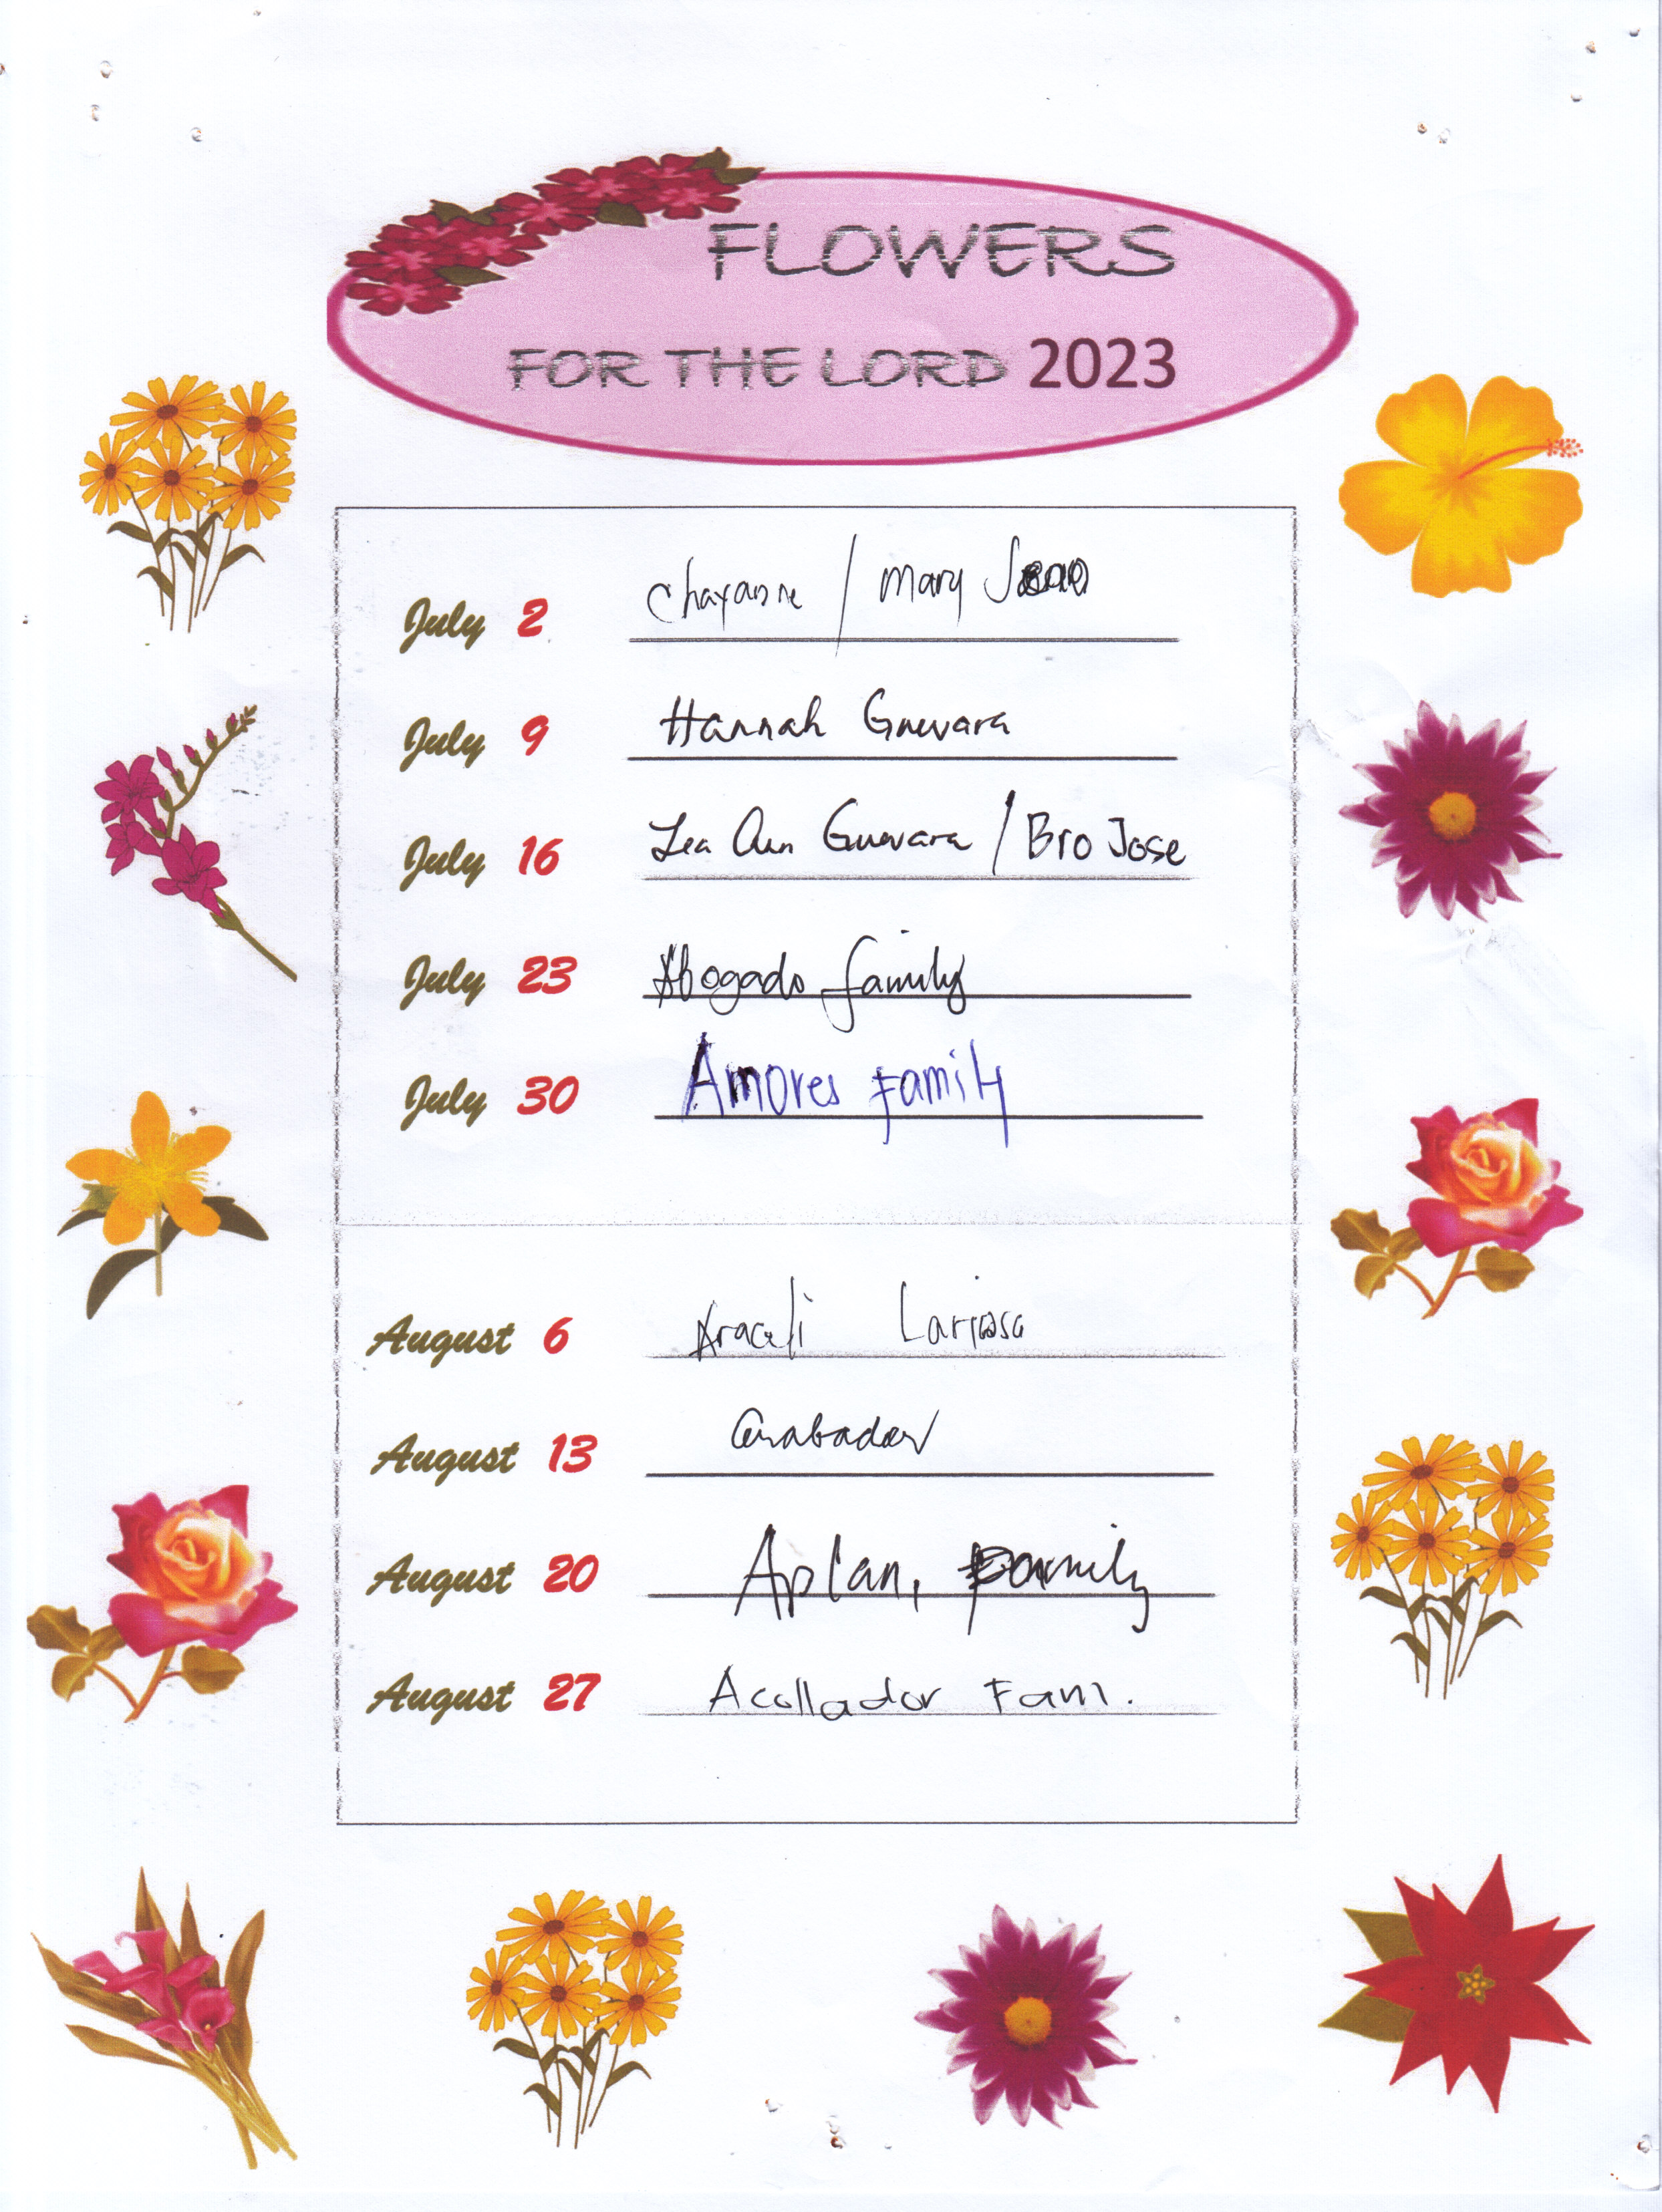 FLOWERS
FOR THE LORD 2023
July 2 Chayanne / Mary
July 9 Hannah Guevara
July 16 Lea Ann Guevara / Bro Jose
July 23 Abogado family
July 30 Amores Family
August 6 Araceli Lariosa
August 13
August 20 Aplan, Family
August 27 Acollador Fam.